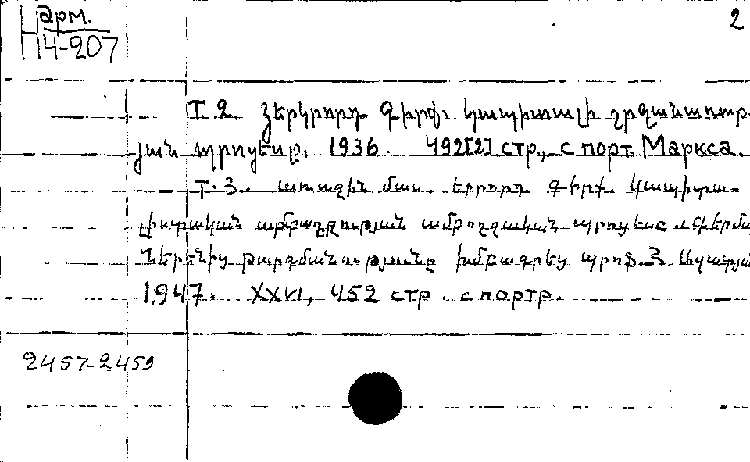 арм.
Н4-207
2
Т. 2. Երկրորդ գիրք. կապիտալի շրջանառու-
յան պրոցեսը. 1936. 492[2] стр., с порт. Маркса.
Т. 3. առաջին մաս. երրորդ գիրք կապիտա-
լիստական արտադրության ամբողջական պրոցես
թարգմանությունը խմբագրել պրոֆ.
1947. XXVI, 452 стр. с портр.
2457-2459